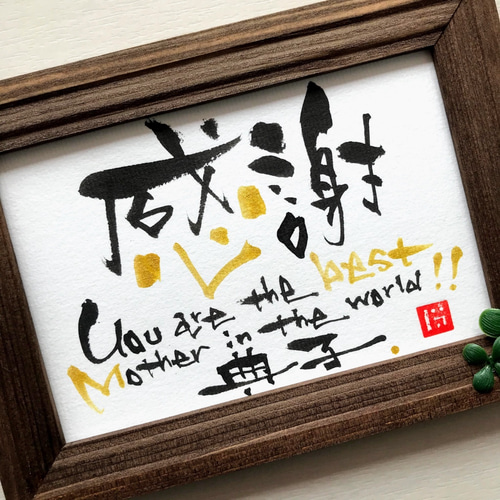 感謝
You are the best
Mother in the world!!
典子.